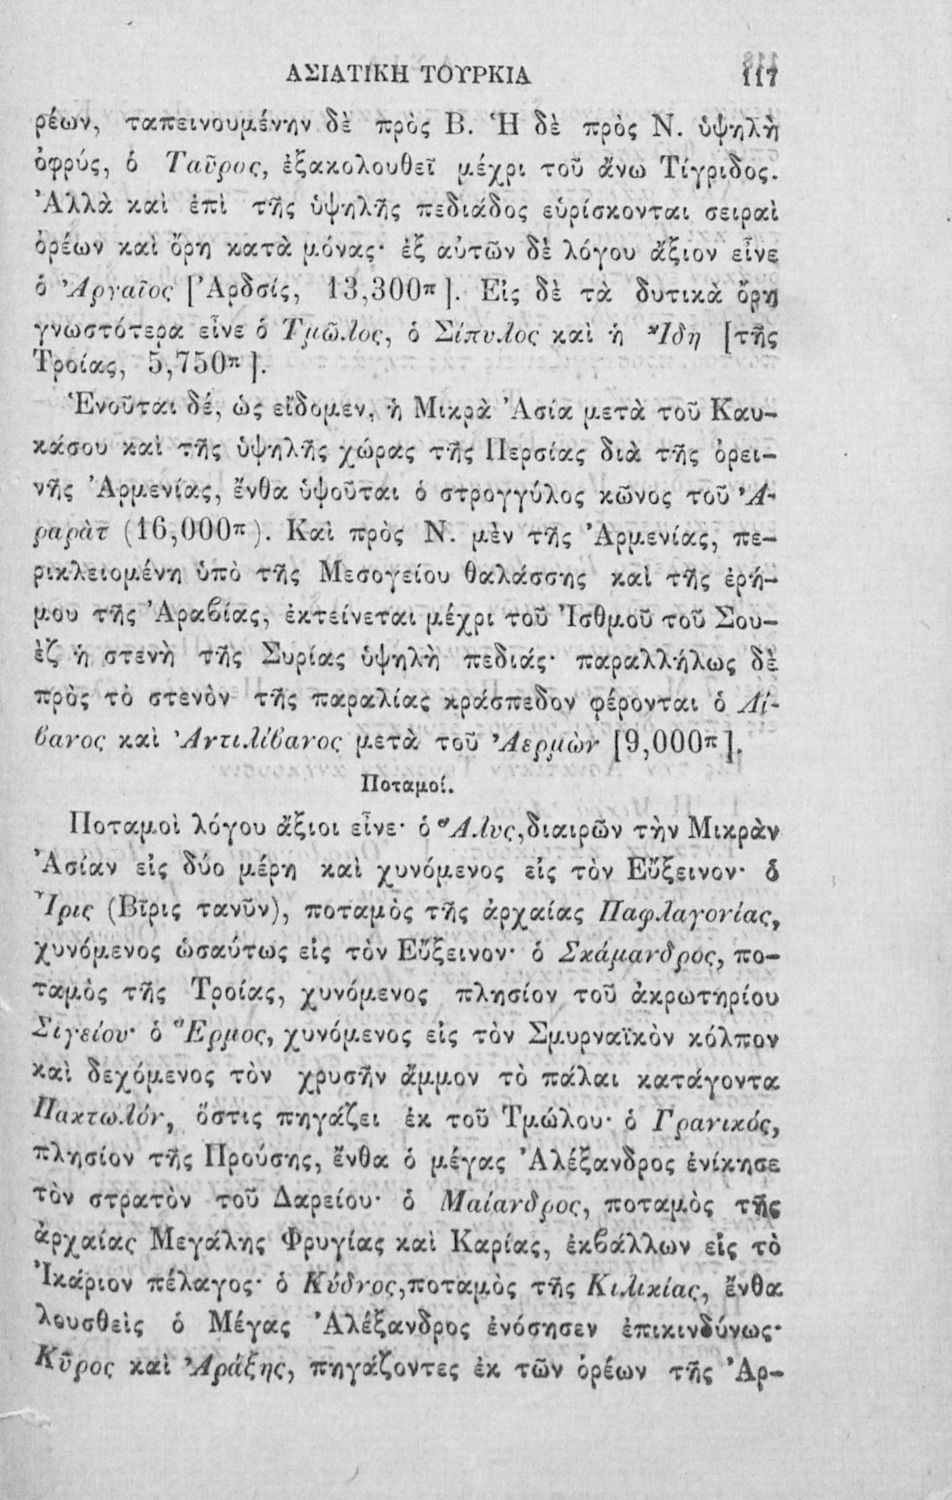 ΑΣΙΑΤΙΚΗ ΤΟΥΡΚΙΑ 117
ρέων, ταπεινουμένην δὲ πρὸς Β. Ἡ δὲ πρὸς Ν. ὑψηλὴ
ὀφρύς, ὁ Ταῦρος, ἐξακολουθεῖ μέχρι τοῦ ἄνω Τίγριδος.
Ἀλλὰ καὶ ἐπὶ τῆς ὑψηλῆς πεδιάδος εὑρίσκονται σειραὶ
ὀρέων καὶ ὄρη κατὰ μόνας· ἐξ αὐτῶν δὲ λόγου ἄξιον εἶνε
ὁ Ἀργαῖος [Ἀρδσίς, 13,300π]. Εἰς δὲ τὰ δυτικὰ ὄρη
γνωστότερα εἶνε ὁ Τμῶλος, ὁ Σίπυλος καὶ ἡ Ἴδη [τῆς
Τροίας, 5,750π].
Ἑνοῦται δέ, ὡς εἴδομεν, ἡ Μικρὰ Ἀσία μετὰ τοῦ Καυ-
κάσου καὶ τῆς ὑψηλῆς χώρας τῆς Περσίας διὰ τῆς ὀρει-
νῆς Ἀρμενίας, ἔνθα ὑψοῦται ὁ στρογγύλος κῶνος τοῦ Ἀ-
ραρὰτ (16,000π). Καὶ πρὸς Ν. μὲν τῆς Ἀρμενίας, πε-
ρικλειομένη ὑπὸ τῆς Μεσογείου θαλάσσης καὶ τῆς ἐρή-
μου τῆς Ἀραβίας, ἐκτείνεται μέχρι τοῦ Ἰσθμοῦ τοῦ Σου-
ὲζ ἡ στενὴ τῆς Συρίας ὑψηλὴ πεδιάς· παραλλήλως δὲ
πρὸς τὸ στενὸν τῆς παραλίας κράσπεδον φέρονται ὁ Λί-
βανος καὶ Ἀντιλίβανος μετὰ τοῦ Ἀερμὼν [9,000π].
Ποταμοί.
Ποταμοὶ λόγου ἄξιοι εἶνε· ὁ Ἅλυς, διαιρῶν τὴν Μικρὰν
Ἀσίαν εἰς δύο μέρη καὶ χυνόμενος εἰς τὸν Εὔξεινον· ὁ
Ἶρις (Βῖρις τανῦν), ποταμὸς τῆς ἀρχαίας Παφλαγονίας,
χυνόμενος ὡσαύτως εἰς τὸν Εὔξεινον· ὁ Σκάμανδρος, πο-
ταμὸς τῆς Τροίας, χυνόμενος πλησίον τοῦ ἀκρωτηρίου
Σιγείου· ὁ Ἕρμος, χυνόμενος εἰς τὸν Σμυρναϊκὸν κόλπον
καὶ δεχόμενος τὸν χρυσῆν ἄμμον τὸ πάλαι κατάγοντα
Πακτωλόν, ὅστις πηγάζει ἐκ τοῦ Τμώλου· ὁ Γρανικός,
πλησίον τῆς Προύσης, ἔνθα ὁ μέγας Ἀλέξανδρος ἐνίκησε
τὸν στρατὸν τοῦ Δαρείου· ὁ Μαίανδρος, ποταμὸς τῆς
ἀρχαίας Μεγάλης Φρυγίας καὶ Καρίας, ἐκβάλλων εἰς τὸ
Ἰκάριον πέλαγος· ὁ Κύδνος, ποταμὸς τῆς Κιλικίας, ἔνθα
λουσθεὶς ὁ Μέγας Ἀλέξανδρος ἐνόσησεν ἐπικινδύνως·
Κῦρος καὶ Ἀράξης, πηγάζοντες ἐκ τῶν ὀρέων τῆς Ἀρ-